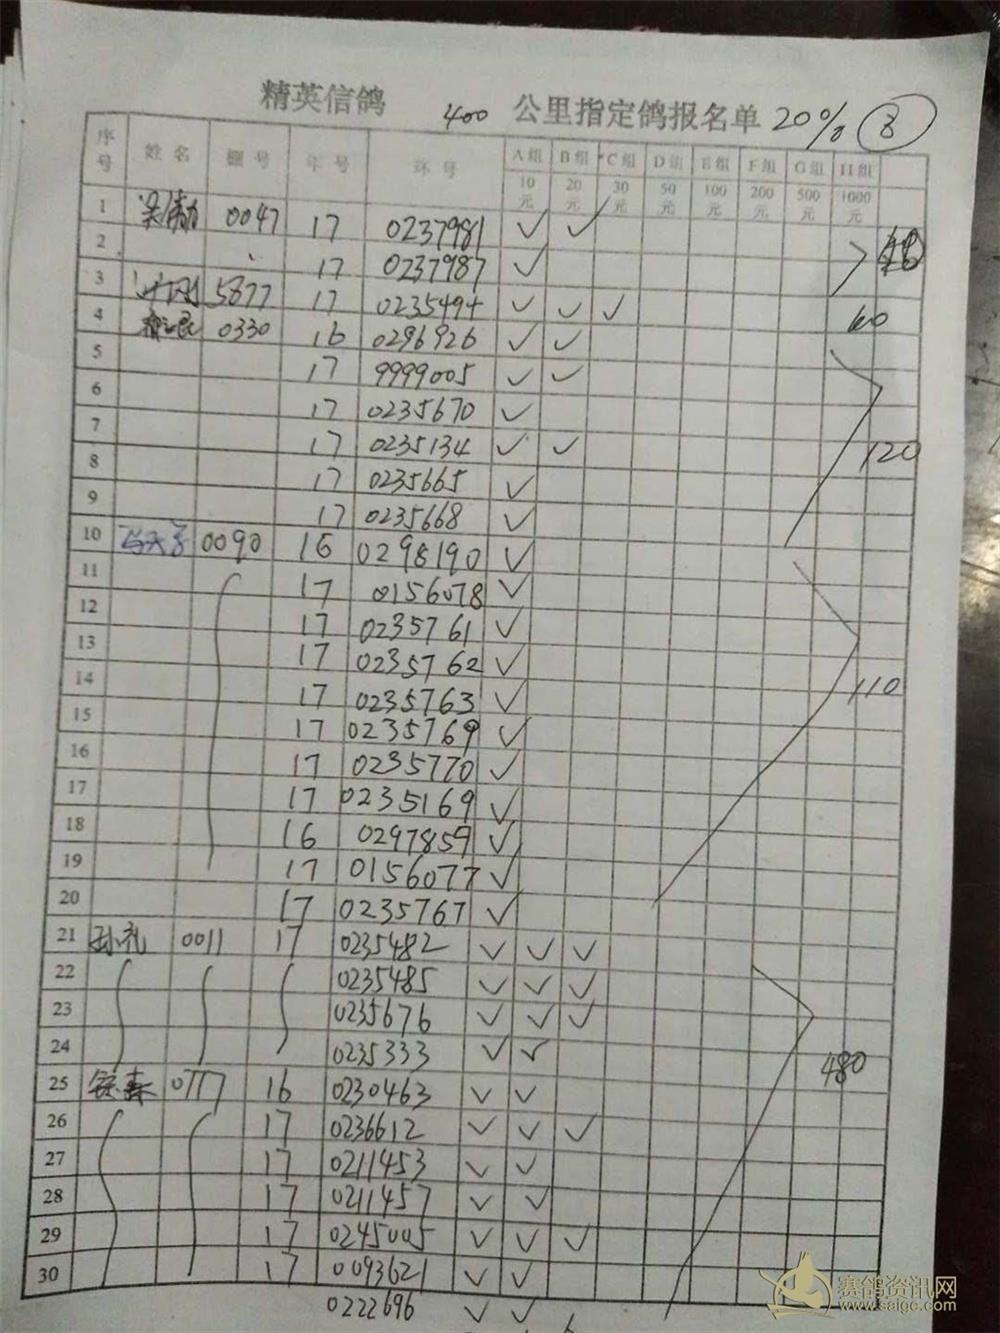 精英信鸽 400 公里指定鸽报名单 20% 8
序号 姓名 棚号 年号 环号 A组 B组 C组 D组 E组 F组 G组 H组
10元 20元 30元 50元 100元 200元 500元 1000元
1 0047 17 0237981 ✓ ✓
2 17 0237987 ✓
3 5877 17 0235494 ✓ ✓ ✓ 60
4 0330 16 0296926 ✓ ✓
5 17 9999005 ✓ ✓
6 17 0235670 ✓
7 17 0235134 ✓ ✓ 120
8 17 0235665 ✓
9 17 0235668 ✓
10 0090 16 0298190 ✓
11 17 0156078 ✓
12 17 0235761 ✓
13 17 0235762 ✓
14 17 0235763 ✓ 110
15 17 0235769 ✓
16 17 0235770 ✓
17 17 0235169 ✓
18 16 0297859 ✓
19 17 0156077 ✓
20 17 0235767 ✓
21 孙礼 0011 17 0235482 ✓ ✓ ✓
22 0235485 ✓ ✓ ✓
23 0235676 ✓ ✓ ✓
24 0235333 ✓ ✓ 480
25 0717 16 0230463 ✓ ✓
26 17 0236612 ✓ ✓ ✓
27 17 0211453 ✓ ✓
28 17 0211457 ✓ ✓
29 17 0245005 ✓ ✓ ✓
30 17 0093621 ✓ ✓
0222696 ✓ ✓
赛鸽资讯网
www.saigc.com